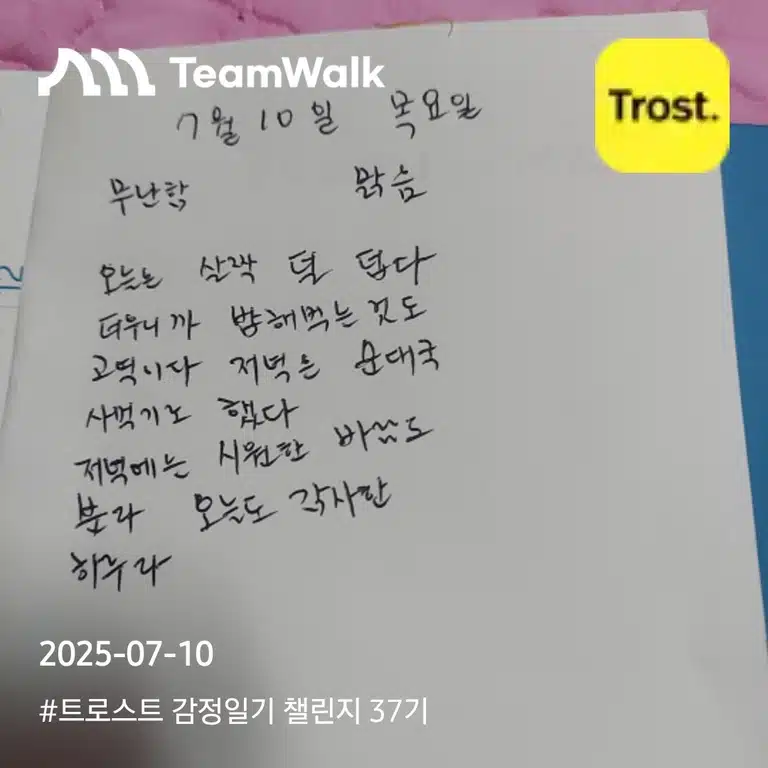 TeamWalk
Trost.
7월 10일 목요일
무난함 맑음
오늘은 살짝 덜 덥다
더우니까 밥해먹는것도
고역이다 저녁은 순대국
사먹기로 했다
저녁에는 시원한 바람도
분다 오늘도 감사한
하루다
2025-07-10
#트로스트 감정일기 챌린지 37기